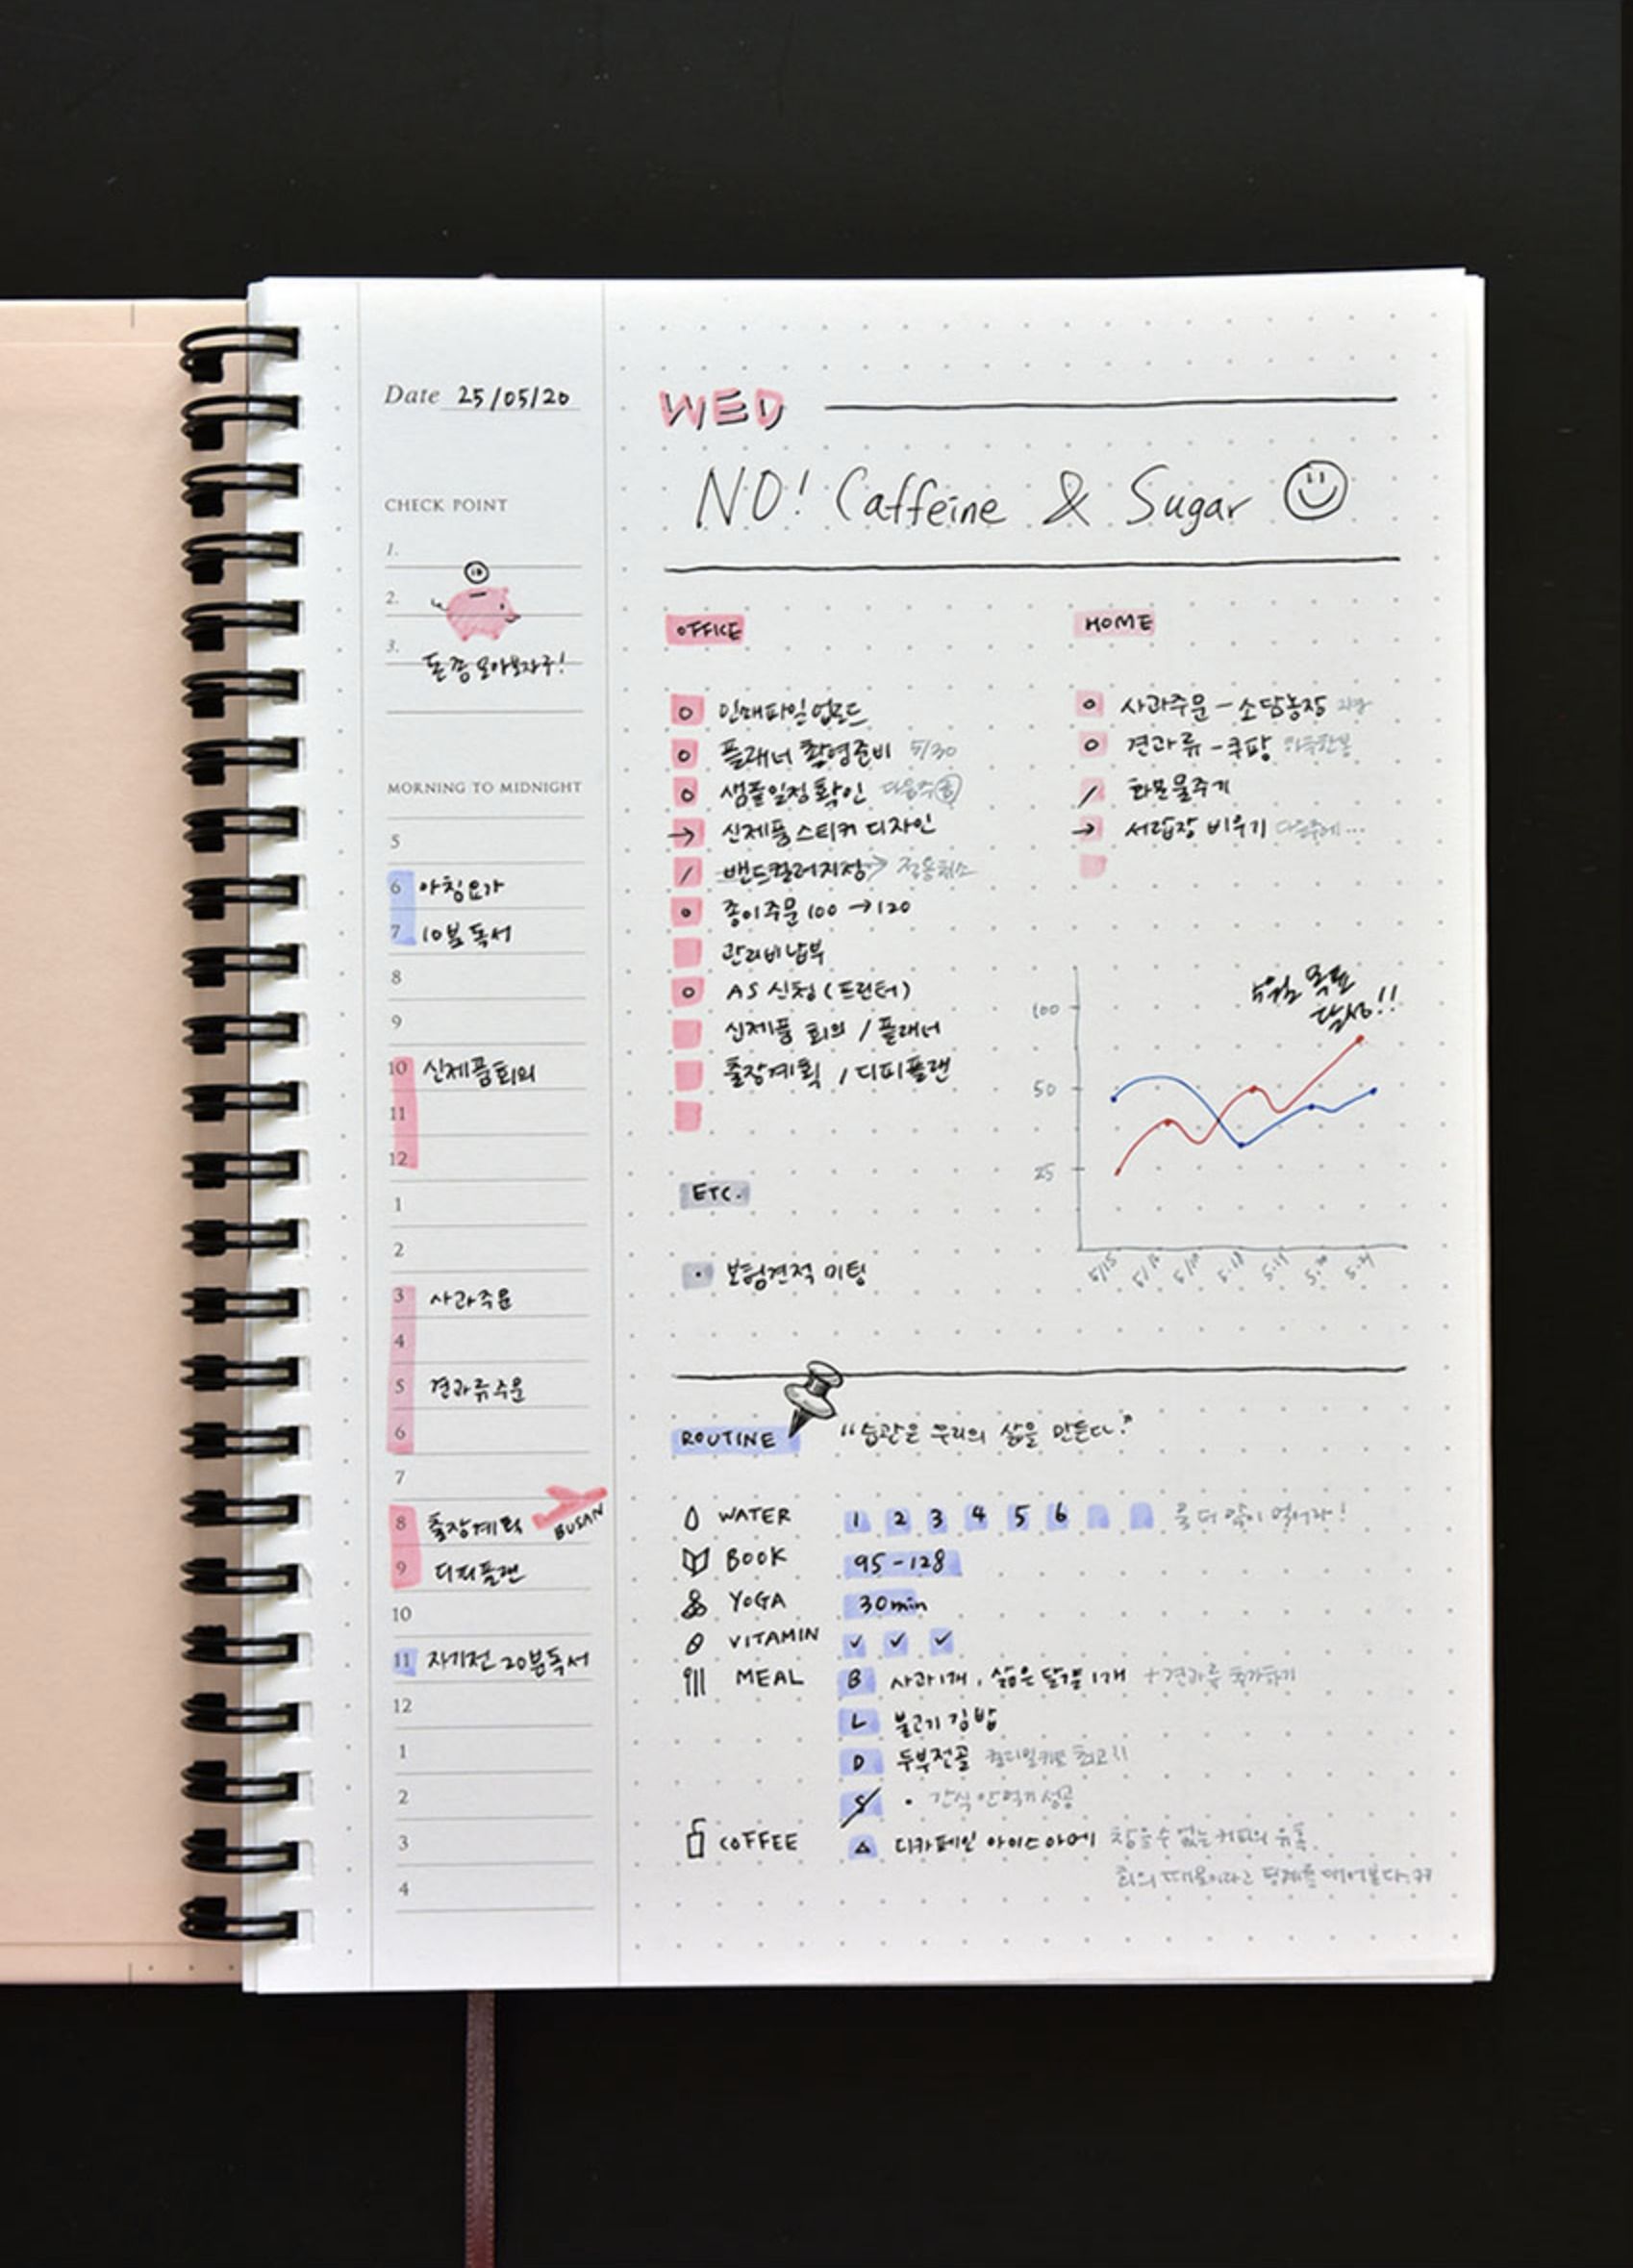 Date 25/05/20
CHECK POINT
1.
2.
3.
돈 좀 모아보자구!
MORNING TO MIDNIGHT
5
6 아침요가
7 10분 독서
8
9
10 신제품회의
11
12
1
2
3 사과주문
4
5 견과류주문
6
7
8 출장계획 BUSAN
9 디피플랜
10
11 자기전 20분독서
12
1
2
3
4
WED
NO! Caffeine & Sugar
OFFICE
인쇄파일 업로드
플래너 촬영준비 5/30
샘플일정 확인 다음주 금
신제품 스티커 디자인
밴드컬러지정 → 적용취소
종이주문 100 → 120
관리비납부
AS 신청 (프린터)
신제품 회의 / 플래너
출장계획 / 디피플랜
HOME
사과주문 - 소담농장
견과류 - 쿠팡
화분물주기
서랍장 비우기 다음주에...
5월 목표
달성!!
100
50
25
5/15
ETC.
보험견적 미팅
ROUTINE "습관은 우리의 삶을 만든다."
WATER 1 2 3 4 5 6 물 더 많이 먹어라!
BOOK 95-128
YOGA 30min
VITAMIN ✓ ✓ ✓
MEAL B 사과1개, 삶은 달걀 1개 +견과류 추가하기
L 불고기 김밥
D 두부전골 최고!!
S • 간식 안먹기 성공
COFFEE 디카페인 아이스아메 참을수 없는 커피의 유혹.
회의 때문이라고 핑계를 대어본다.ㅋㅋ